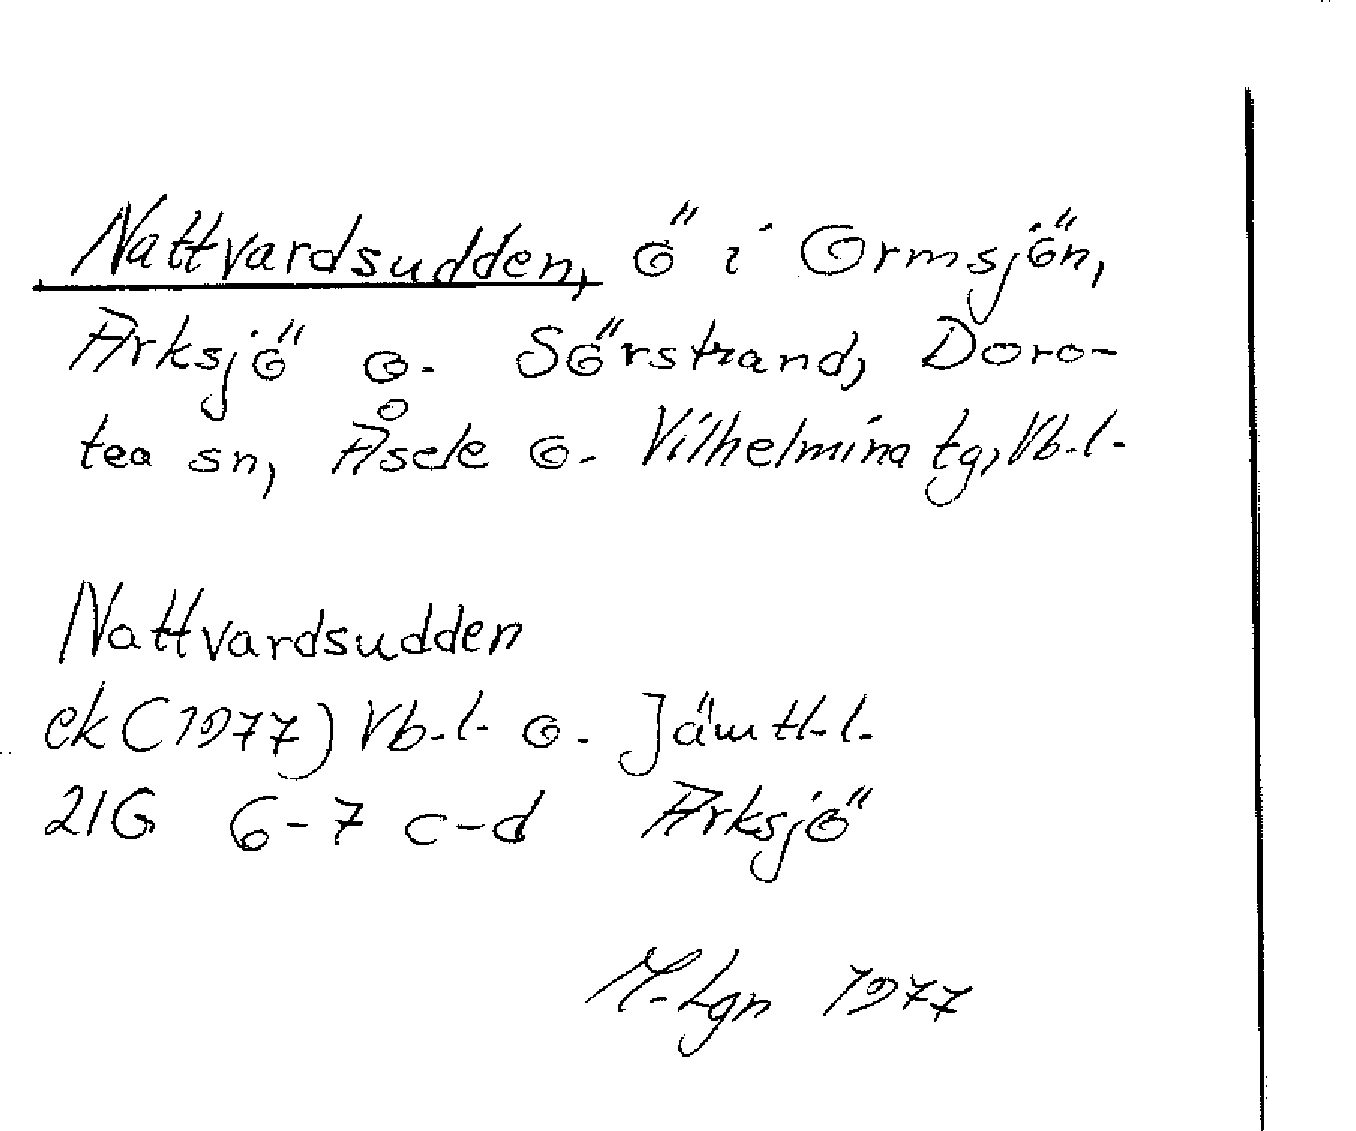 Nattvardsudden, ö i Ormsjön,
Arksjö o. Sörstrand, Doro-
tea sn, Åsele o. Vilhelmina tg, Vb.l.
Nattvardsudden
ek (1977) Vb.l. o. Jämtl.l.
21G 6-7 c-d Arksjö
M-Lgn 1977